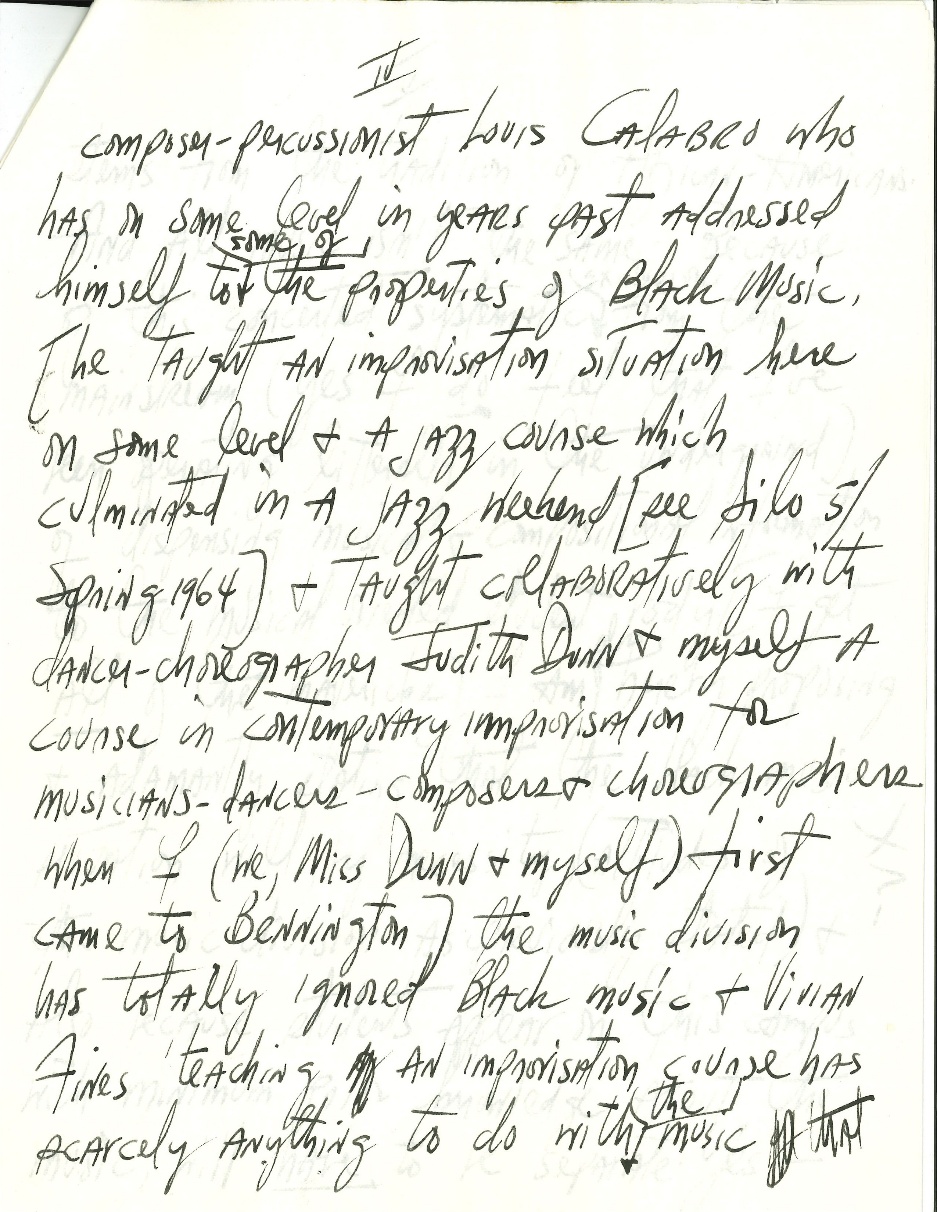 IV
composer-percussionist Louis Calabro who
has on some level in years past addressed
some of
himself to the properties of Black Music.
[he taught an improvisation situation here
on some level + a jazz course which
culminated in a jazz weekend [see Silo 5/
Spring 1964] + taught collaboratively with
dancer-choreographer Judith Dunn + myself a
course in contemporary immprovisation for
musicians-dancers-composers + choreographers
when I (we, Miss Dunn + myself) first
came to Bennington] the music division
has totally ignored Black music + Vivian
Fines teaching an improvisation course has
the
scarcely anything to do with music that